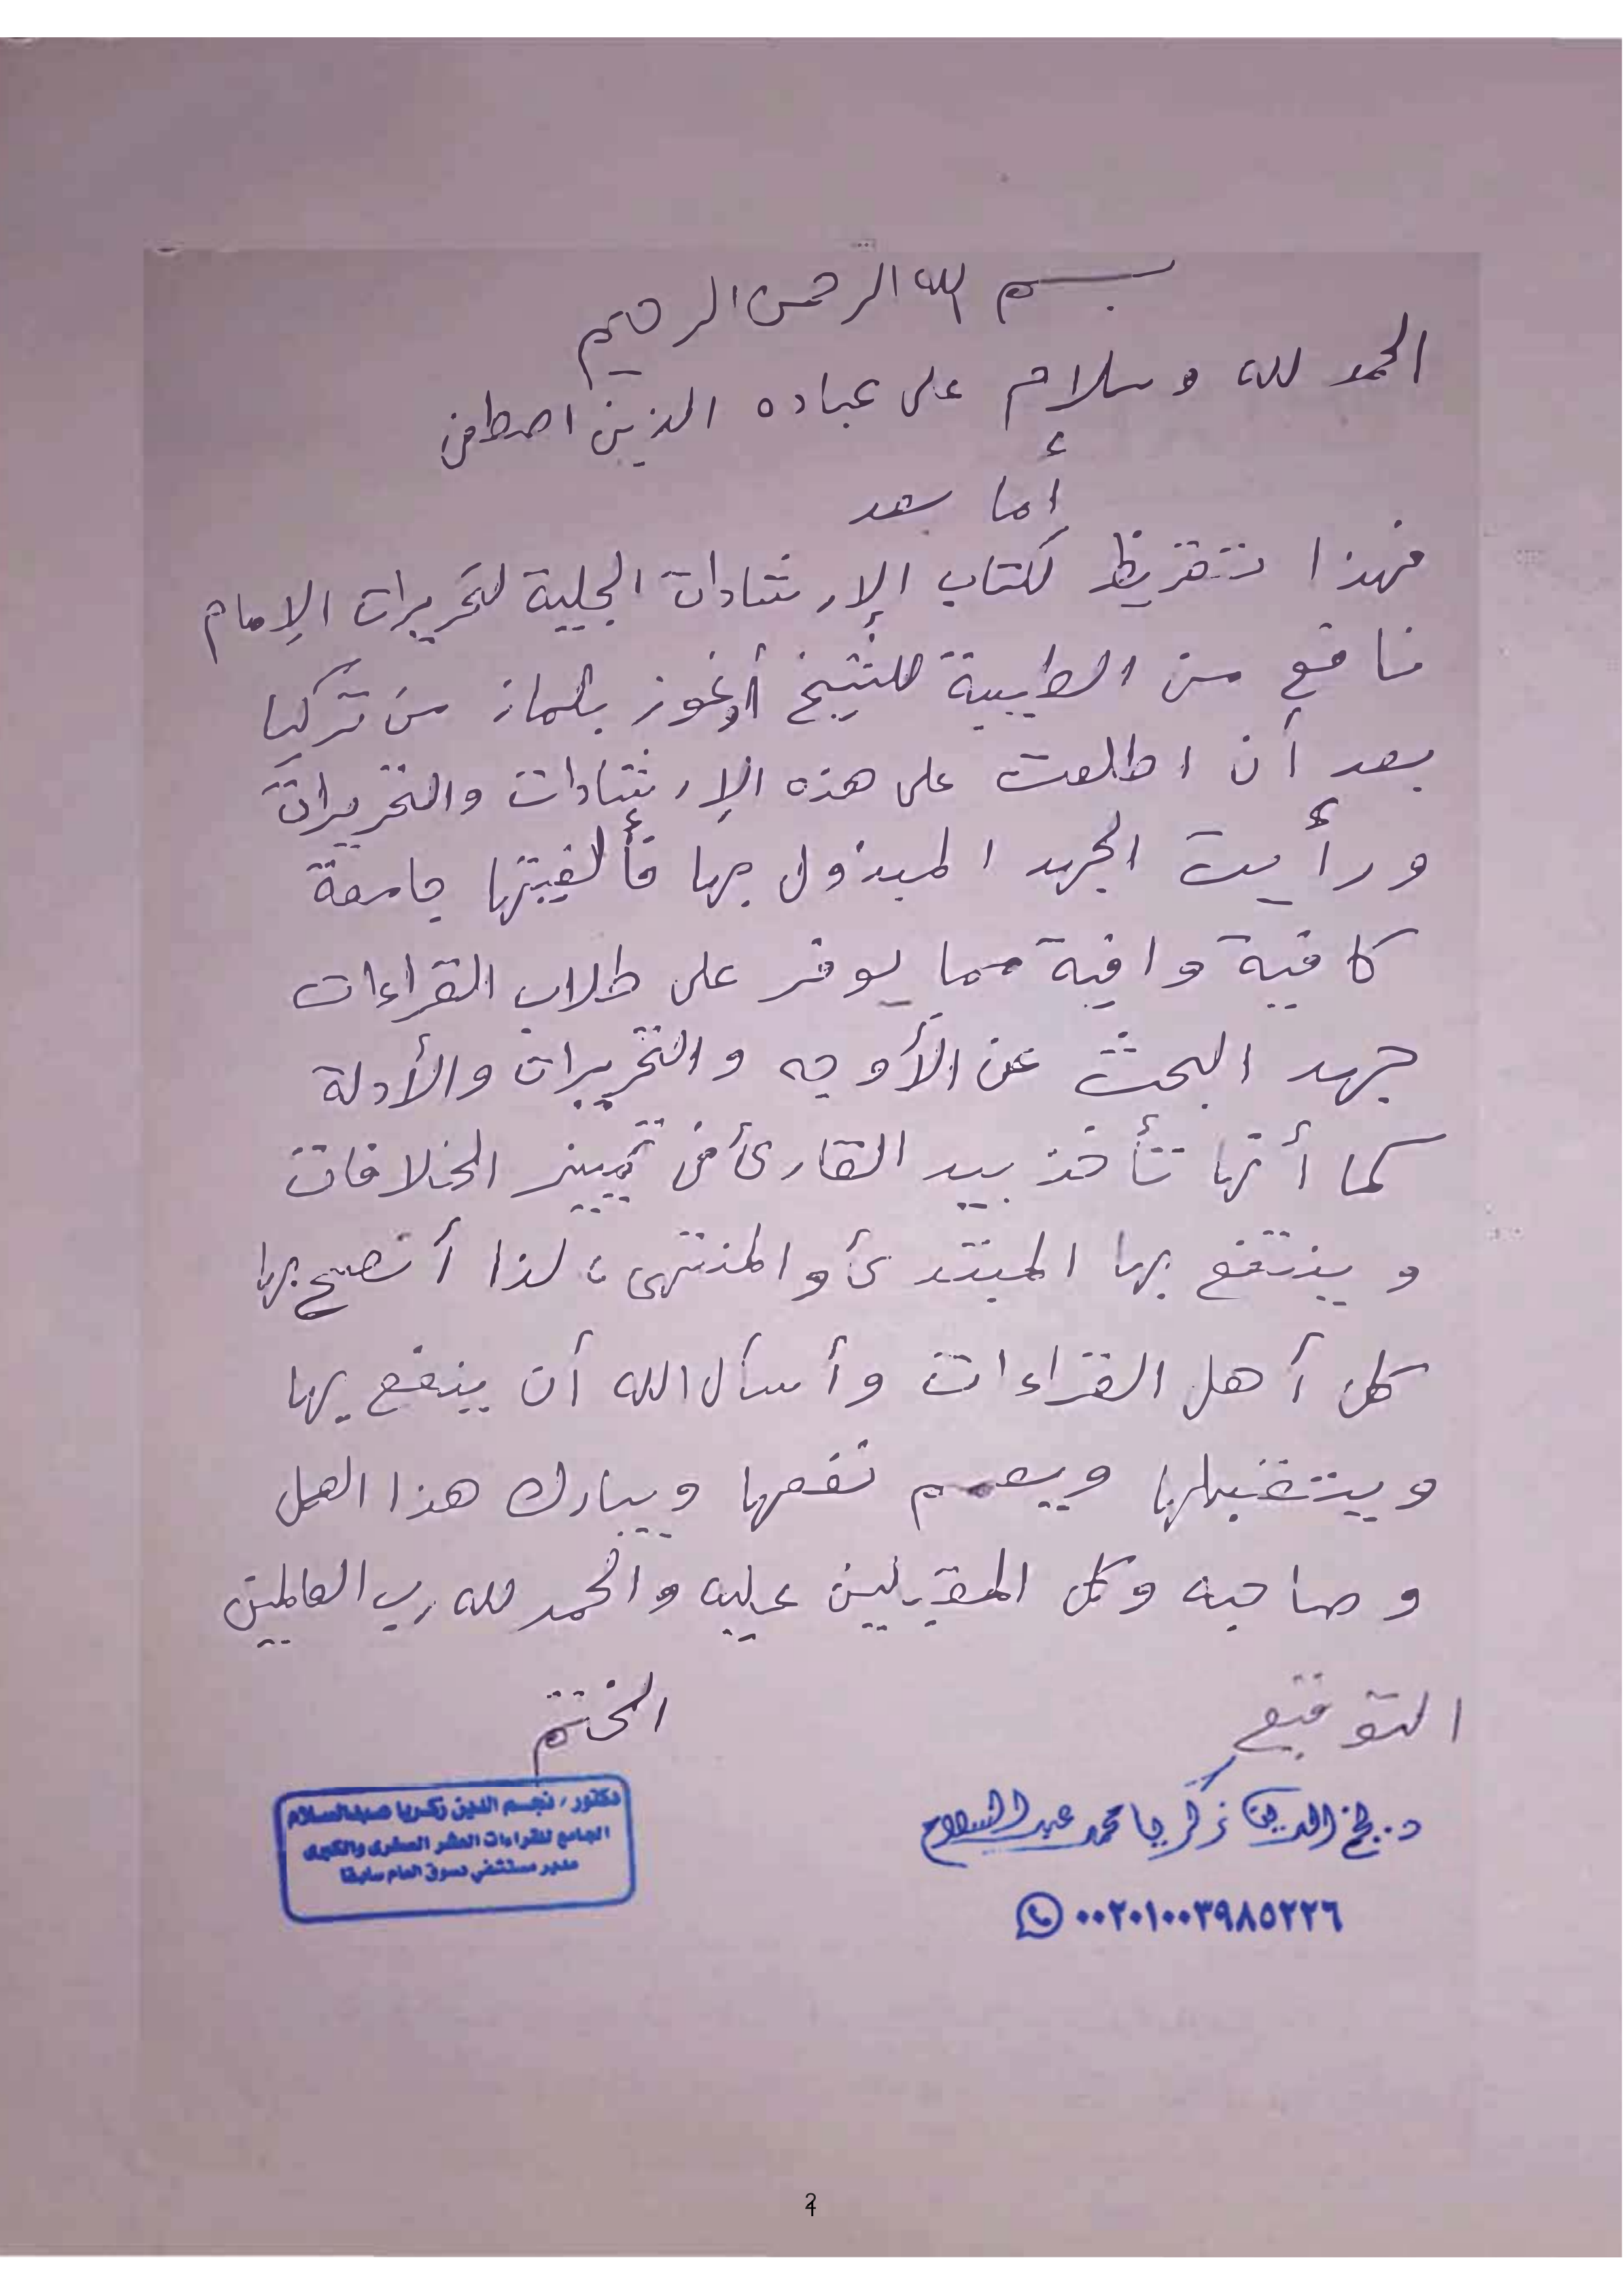 بسم الله الرحمن الرحيم
الحمد لله وسلام على عباده الذين اصطفى
أما بعد
فهذا تقريظ لكتاب الإرشادات الجلية لتحريرات الإمام
نافع من الطيبة للشيخ أوغوز يلماز من تركيا
بعد أن اطلعت على هذه الإرشادات والتحريرات
ورأيت الجهد المبذول بها فألفيتها جامعة
كافية وافية مما يوفر على طلاب القراءات
جهد البحث عن الأوجه والتحريرات والأدلة
كما أنها تأخذ بيد القارئ في تمييز الخلافات
وينتفع بها المبتدئ والمنتهى، لذا أنصح بها
كل أهل القراءات وأسأل الله أن ينفع بها
ويتقبلها ويعمم نفعها ويبارك هذا العمل
وصاحبه وكل المقبلين عليه والحمد لله رب العالمين
التوقيع الختم
د. نجم الدين زكريا محمد عبد السلام
٠٠٢٠١٠٠٣٩٨٥٢٢٦
دكتور / نجم الدين زكريا عبدالسلام
الجامع للقراءات العشر الصغرى والكبرى
مدير مستشفى دسوق العام سابقا